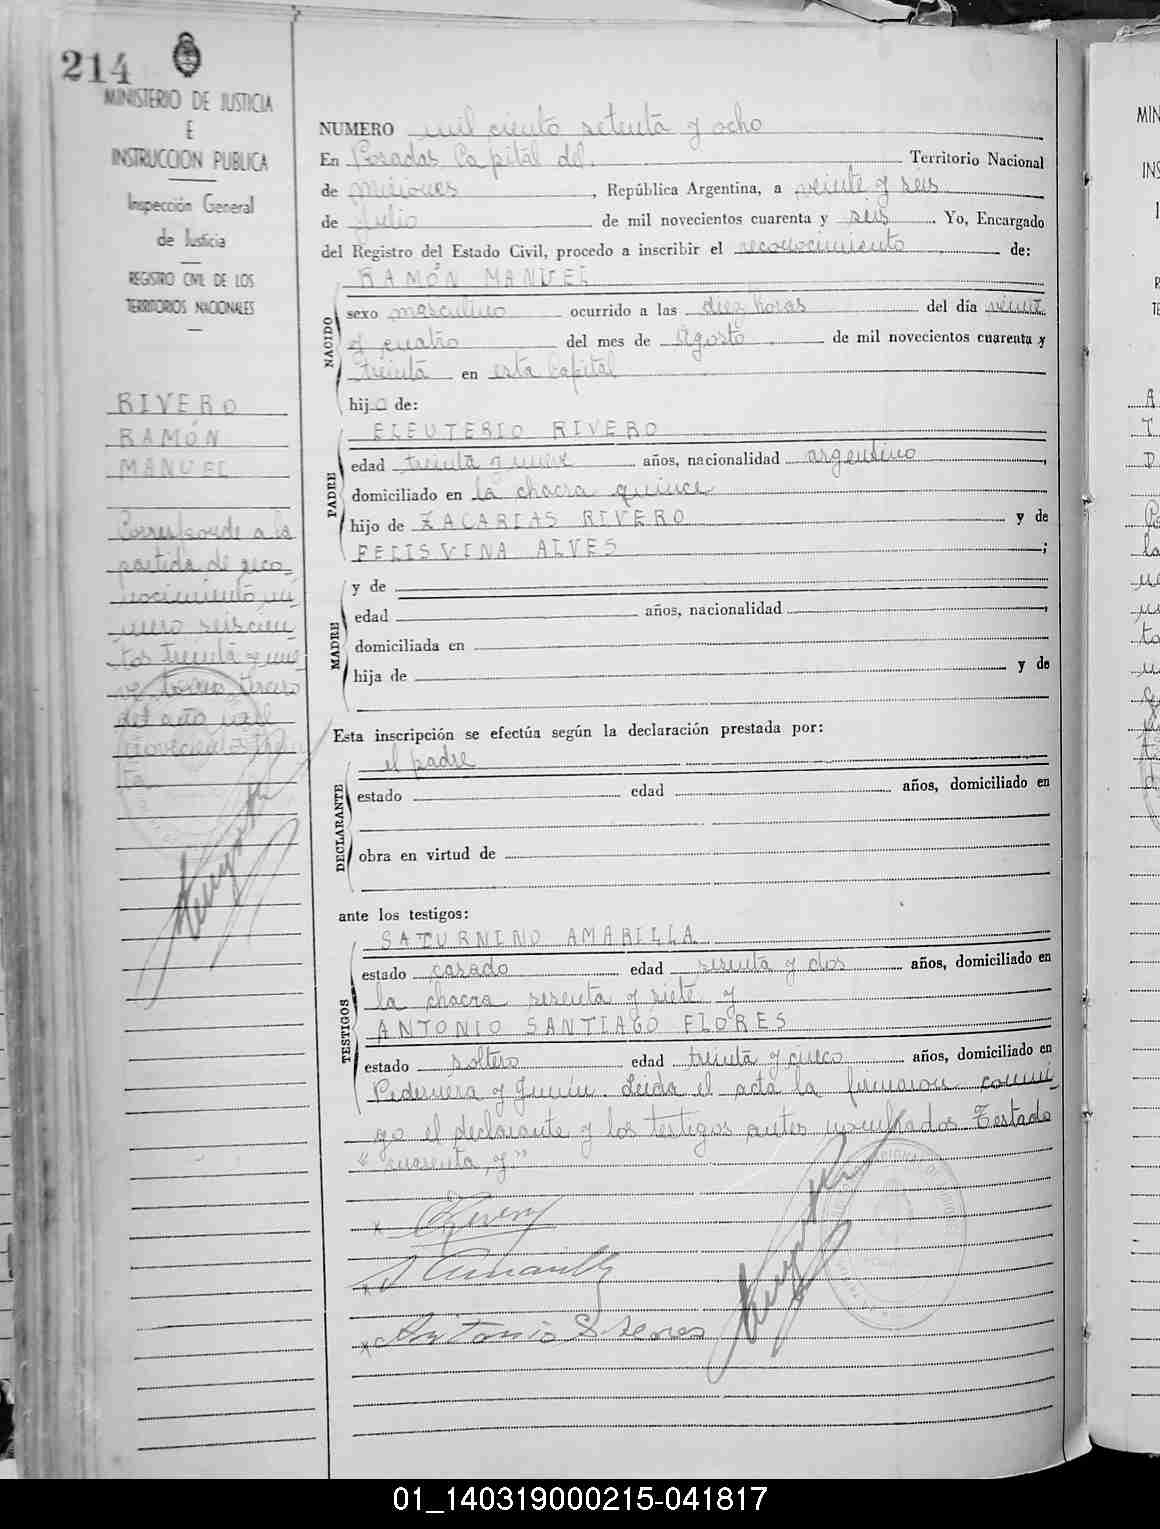 214
MINISTERIO DE JUSTICIA
E
INSTRUCCION PUBLICA
Inspección General
de Justicia
REGISTRO CIVIL DE LOS
TERRITORIOS NACIONALES
RIVERO
RAMÓN
MANUEL
Corresponde a la
partida de reco-
nocimiento nú-
mero seiscien
tos treinta y nue
ve tomo tercero
del año mil
novecientos trein
ta
NUMERO mil ciento setenta y ocho
En Posadas Capital del Territorio Nacional
de Misiones, República Argentina, a veinte y seis
de Julio de mil novecientos cuarenta y seis. Yo, Encargado
del Registro del Estado Civil, procedo a inscribir el reconocimiento de:
NACIDO
RAMÓN MANUEL
sexo masculino ocurrido a las diez horas del día veinte
y cuatro del mes de Agosto de mil novecientos cuarenta y
treinta en esta Capital
hijo de:
PADRE
ELEUTERIO RIVERO
edad treinta y nueve años, nacionalidad argentino,
domiciliado en la chacra quince
hijo de ZACARIAS RIVERO y de
FELISVINA ALVES;
MADRE
y de
edad años, nacionalidad,
domiciliada en
hija de y de
Esta inscripción se efectúa según la declaración prestada por:
DECLARANTE
el padre
estado edad años, domiciliado en
obra en virtud de
ante los testigos:
TESTIGOS
SATURNINO AMARILLA
estado casado edad sesenta y dos años, domiciliado en
la chacra sesenta y siete y
ANTONIO SANTIAGO FLORES
estado soltero edad treinta y cinco años, domiciliado en
Pedernera y Junín. Leida el acta la firmaron conmi-
go el declarante y los testigos antes nombrados Testado
"cuarenta, y"
x ERivero
x S Amarilla
x Antonio S Flores
MIN
INS
01_140319000215-041817